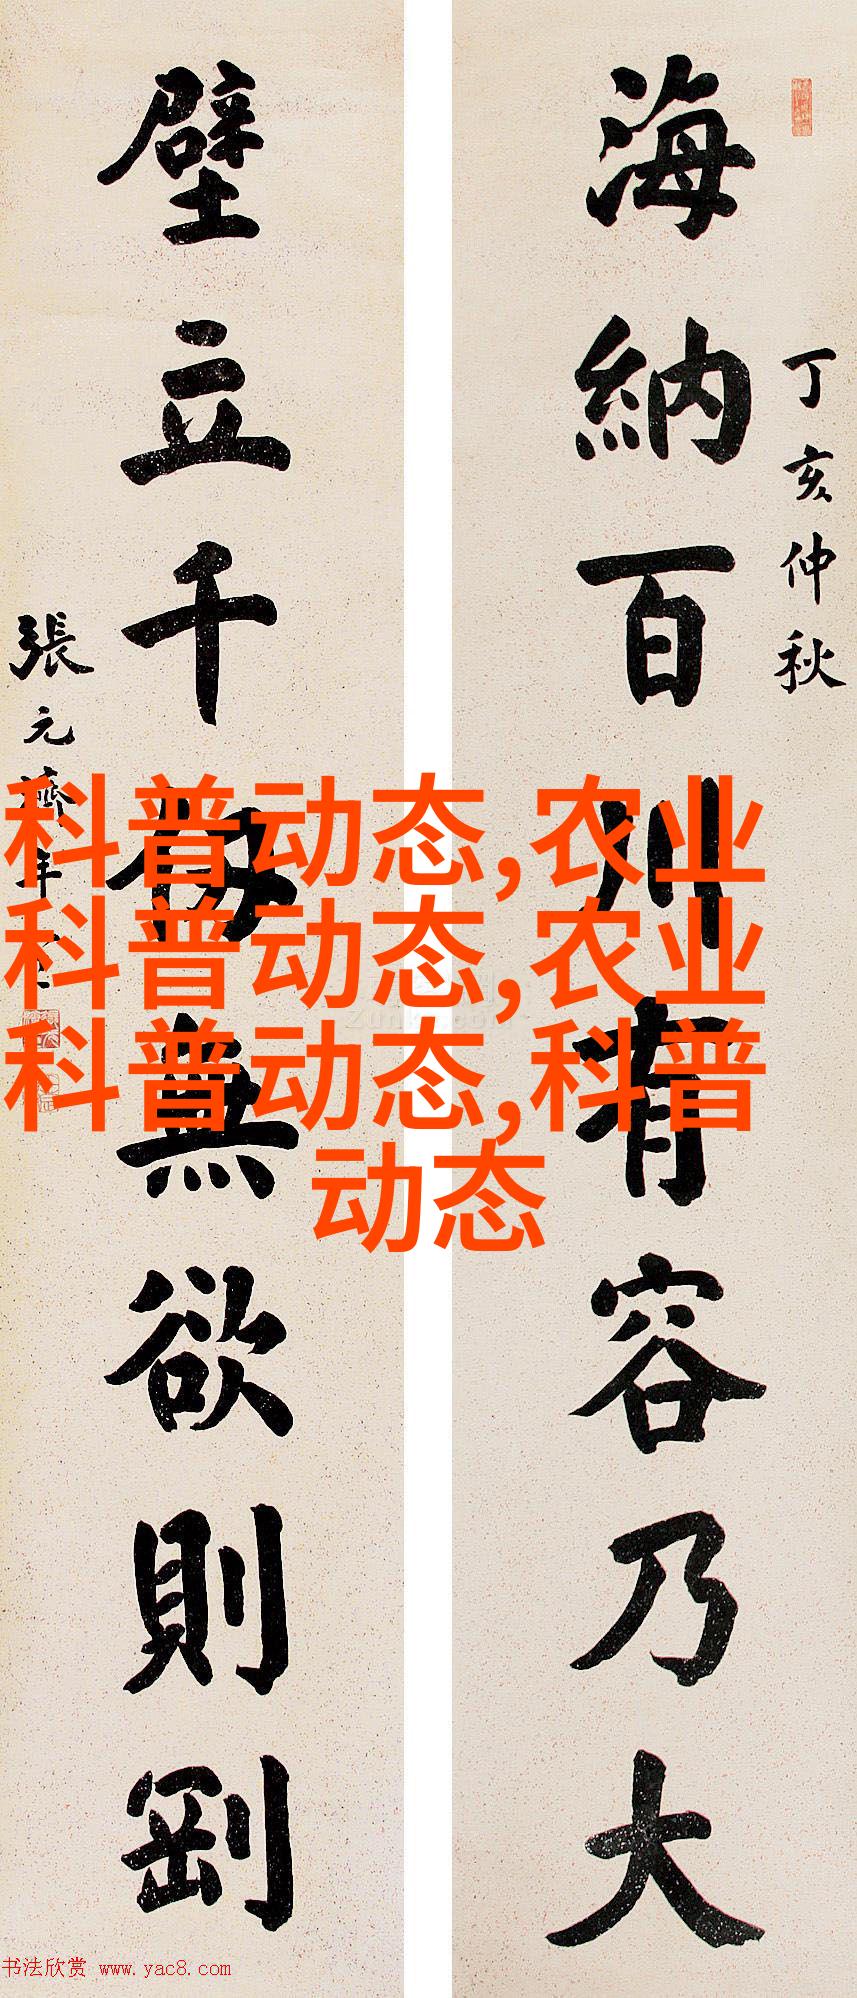 海納百川有容乃大
丁亥仲秋
壁立千仞無欲則剛
張元濟年
科普动态,农业
科普动态,农业
科普动态,科普
动态
书法欣赏 www.yac8.com